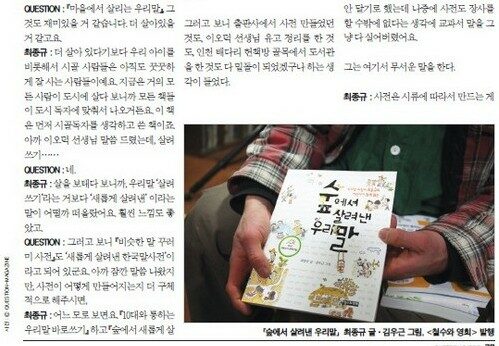 QUESTION : 『마을에서 살려낸 우리말』. 그
것도 재미있을 거 같습니다. 더 살아있을
거 같고요.
최종규 : 더 살아 있다기보다 우리 아이를
비롯해서 시골 사람들은 아직도 꿋꿋하
게 잘 사는 사람들이에요. 지금은 거의 모
든 사람이 도시에 살다 보니까 모든 책들
이 도시 독자에 맞춰서 나오거든요. 이 책
은 먼저 시골독자를 생각하고 쓴 책이죠.
아까 이오덕 선생님 말씀 드렸는데, 살려
쓰기……
QUESTION : 네.
최종규 : 살을 보태다 보니까, 우리말 ‘살려
쓰기’라는 거보다 ‘새롭게 살려낸’ 이라는
말이 어떨까 떠올랐어요. 훨씬 느낌도 좋
았고.
QUESTION : 그러고 보니 『비슷한 말 꾸러
미 사전』도 ‘새롭게 살려낸 한국말사전’이
라고 되어 있군요. 아까 잠깐 말씀 나왔지
만, 사전이 어떻게 만들어지는지 더 구체
적으로 해주시면,
최종규 : 어느 모로 보면요. 『10대와 통하는
우리말 바로쓰기』하고 『숲에서 새롭게 살
그러고 보니 출판사에서 사전 만들었던
것도, 이오덕 선생님 유고 정리를 한 것
도, 인천 배다리 헌책방 골목에서 도서관
을 한 것도 다 밑돌이 되었겠구나 하는 생
각이 들었다.
안 닫기로 했는데 나중에 사전도 장사를
할 수밖에 없다는 생각에 교과서 말을 그
냥 다 실어버렸어요.
그는 여기서 무서운 말을 한다.
최종규 : 사전은 시류에 따라서 만드는 게
숲에서
살려낸
우리말
『숲에서 살려낸 우리말』 최종규 글·김우근 그림, <철수와 영희> 발행
사진 © QUESTION-MAGAZINE